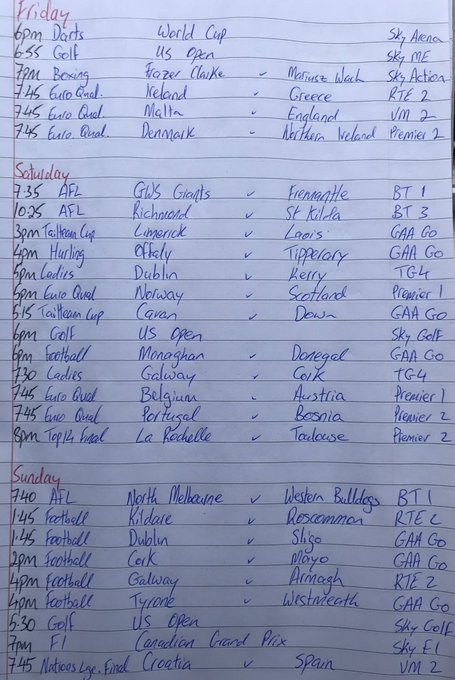 Friday
6pm Darts World Cup Sky Arena
6.55 Golf US Open Sky ME
7pm Boxing Frazer Clarke v Mariusz Wach Sky Action
7.45 Euro Qual. Ireland v Greece RTE 2
7.45 Euro Qual. Malta v England VM 2
7.45 Euro. Qual. Denmark v Northern Ireland Premier 2
Saturday
7.35 AFL GWS Giants v Fremantle BT 1
10.25 AFL Richmond v St Kilda BT 3
3pm Tailteann Cup Limerick v Laois GAA GO
4pm Hurling Offaly v Tipperary GAA GO
5pm Ladies Dublin v Kerry TG4
5pm Euro Qual Norway v Scotland Premier 1
5.15 Tailteann Cup Cavan v Down GAA GO
6pm Golf US Open Sky Golf
6pm Football Monaghan v Donegal GAA GO
7.30 Ladies Galway v Cork TG4
7.45 Euro Qual Belgium v Austria Premier 1
7.45 Euro Qual Portugal v Bosnia Premier 2
8pm Top 14 Final La Rochelle v Toulouse Premier 2
Sunday
7.40 AFL North Melbourne v Western Bulldogs BT 1
1.45 Football Kildare v Roscommon RTE 2
1.45 Football Dublin v Sligo GAA GO
2pm Football Cork v Mayo GAA GO
4pm Football Galway v Armagh RTE 2
4pm Football Tyrone v Westmeath GAA GO
5.30 Golf US Open Sky Golf
7pm F1 Canadian Grand Prix Sky F1
7.45 Nations Lge. Final Croatia v Spain VM 2